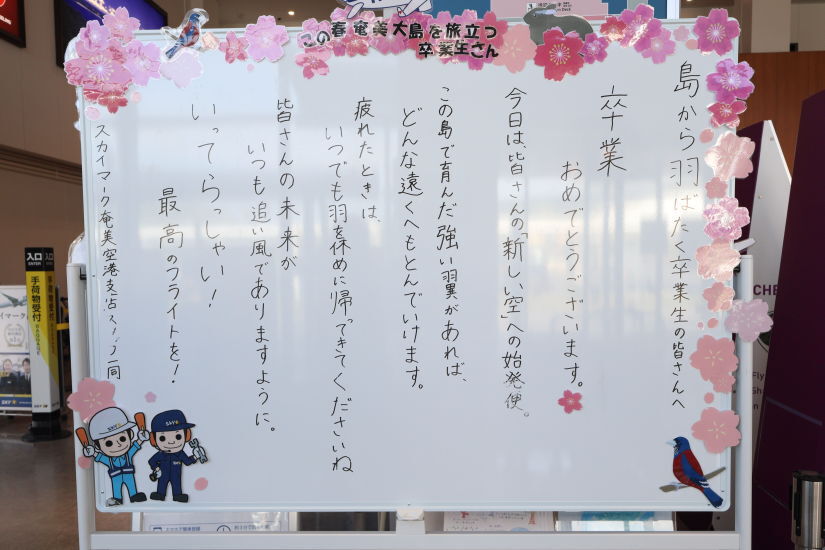 この春奄美大島を旅立つ
卒業生さん
島から羽ばたく卒業生の皆さんへ
卒業
おめでとうございます。
今日は、皆さんの「新しい空」への始発便。
この島で育んだ強い羽翼があれば、
どんな遠くへもとんでいけます。
疲れたときは、
いつでも羽を休めに帰ってきてくださいね
皆さんの未来が
いつも追い風でありますように。
いってらっしゃい！
最高のフライトを！
スカイマーク奄美空港支店スタッフ一同
入口
入口
手荷物受付
手荷物受付
BAGGAGE
SKY
SKY
SKY
CHE
Fly
Sh
on